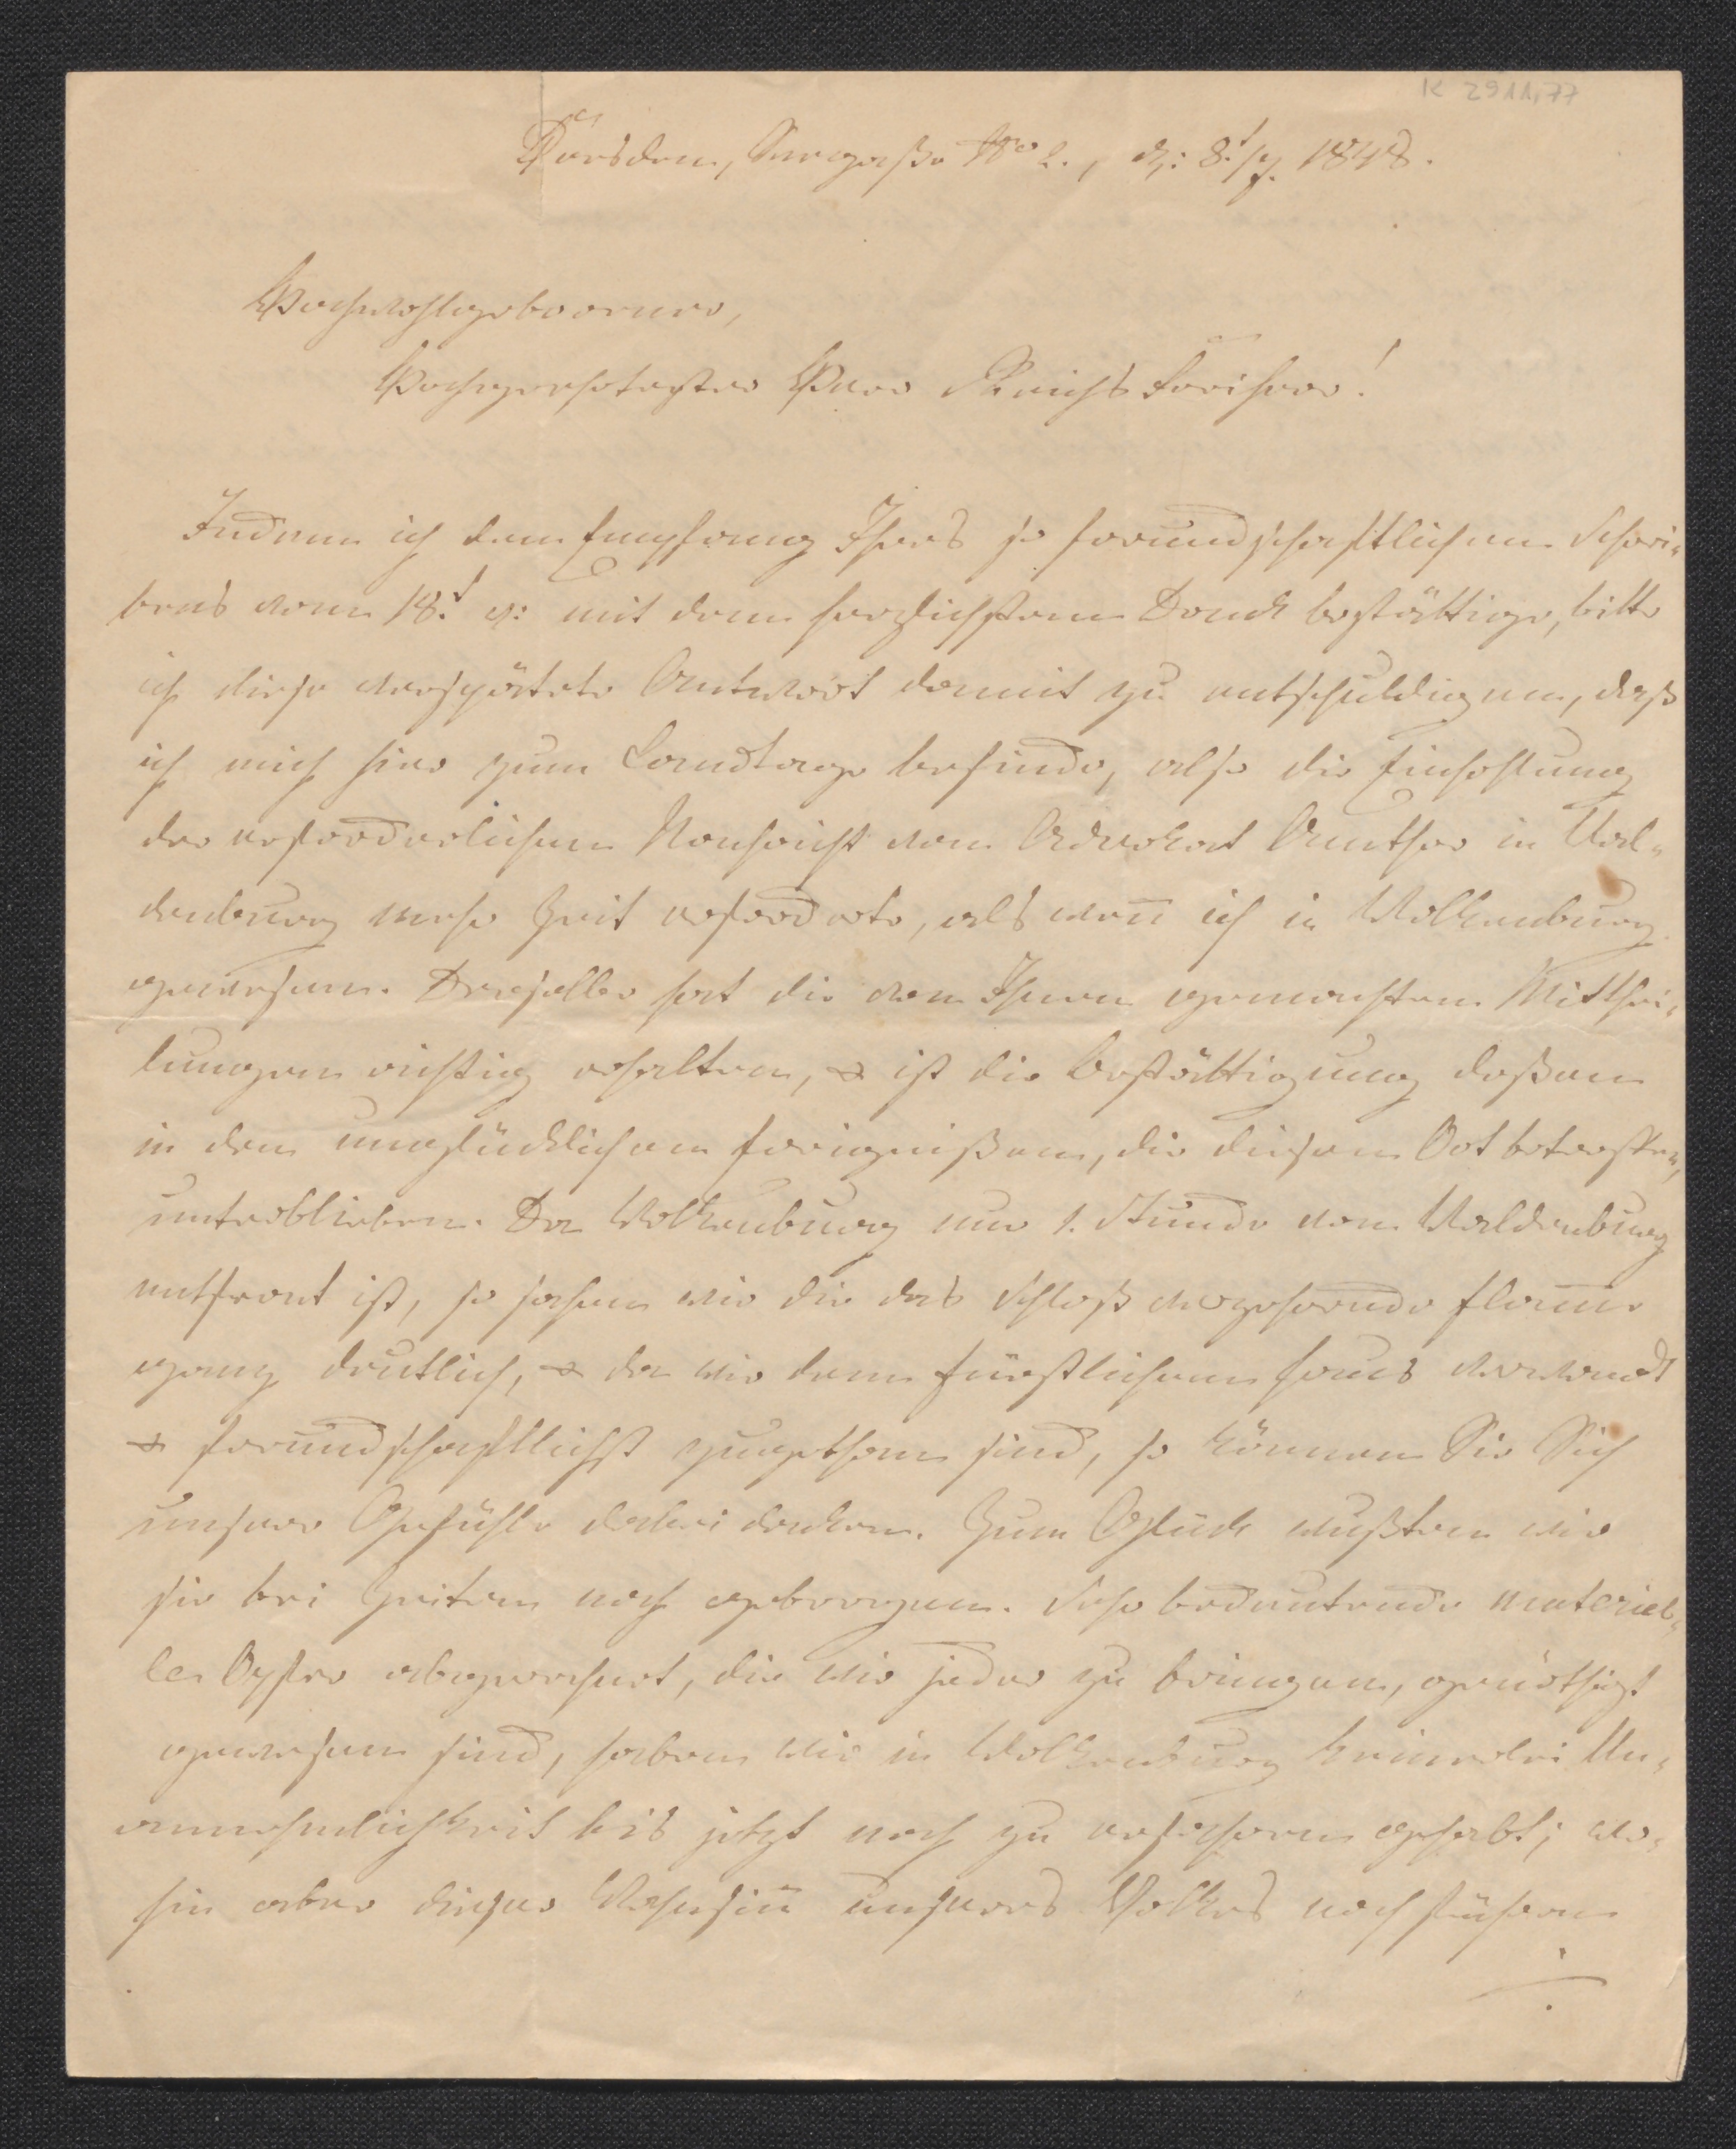 K 2911,77
Dresden, Seegaße No 2., d: 8.t/7. 1848.
Hochwohlgeborner,
Hochgeehrtester Herr Reichsfreiherr!
Indem ich den Empfang Ihres so freundschaftlichen Schrei-
bens vom 18.t v: mit dem herzlichsten Dank bestättige, bitte
ich diese verspätete Antwort damit zu entschuldigen, daß
ich mich hier zum Landtage befinde, also die Einholung
der erforderlichen Nachricht vom Advokat Anther in Wal-
denburg mehr Zeit erforderte, als wen̄ ich in Wolkenburg
gewesen. Derselbe hat die von Ihnen gemachten Mitthei-
lungen richtig erhalten, & ist die Bestättigung deßen
in den unglücklichen Ereignißen, die diesen Ort betroffen,
unterblieben. Da Wolkenburg nur 1. Stunde von Waldenburg
entfernt ist, so sahen wir die das Schloß verzehrende Flam̄e
ganz deutlich, & da wir dem Fürstlichen Haus verwandt
& freundschaftlichst zugethan sind, so können Sie Sich
unsere Gefühle dabei denken. Zum Glück wußten wir
sie bei Zeiten noch geborgen. Sehr bedeutende materiel-
le Opfer abgerechnet, die wir jeder zu bringen, genöthigt
gewesen sind, haben wir in Wolkenburg keinerlei Un-
annehmlichkeit bis jetzt noch zu erfahren gehabt; wo-
hin aber dieser Wahnsin̄ unseres Volkes noch führen